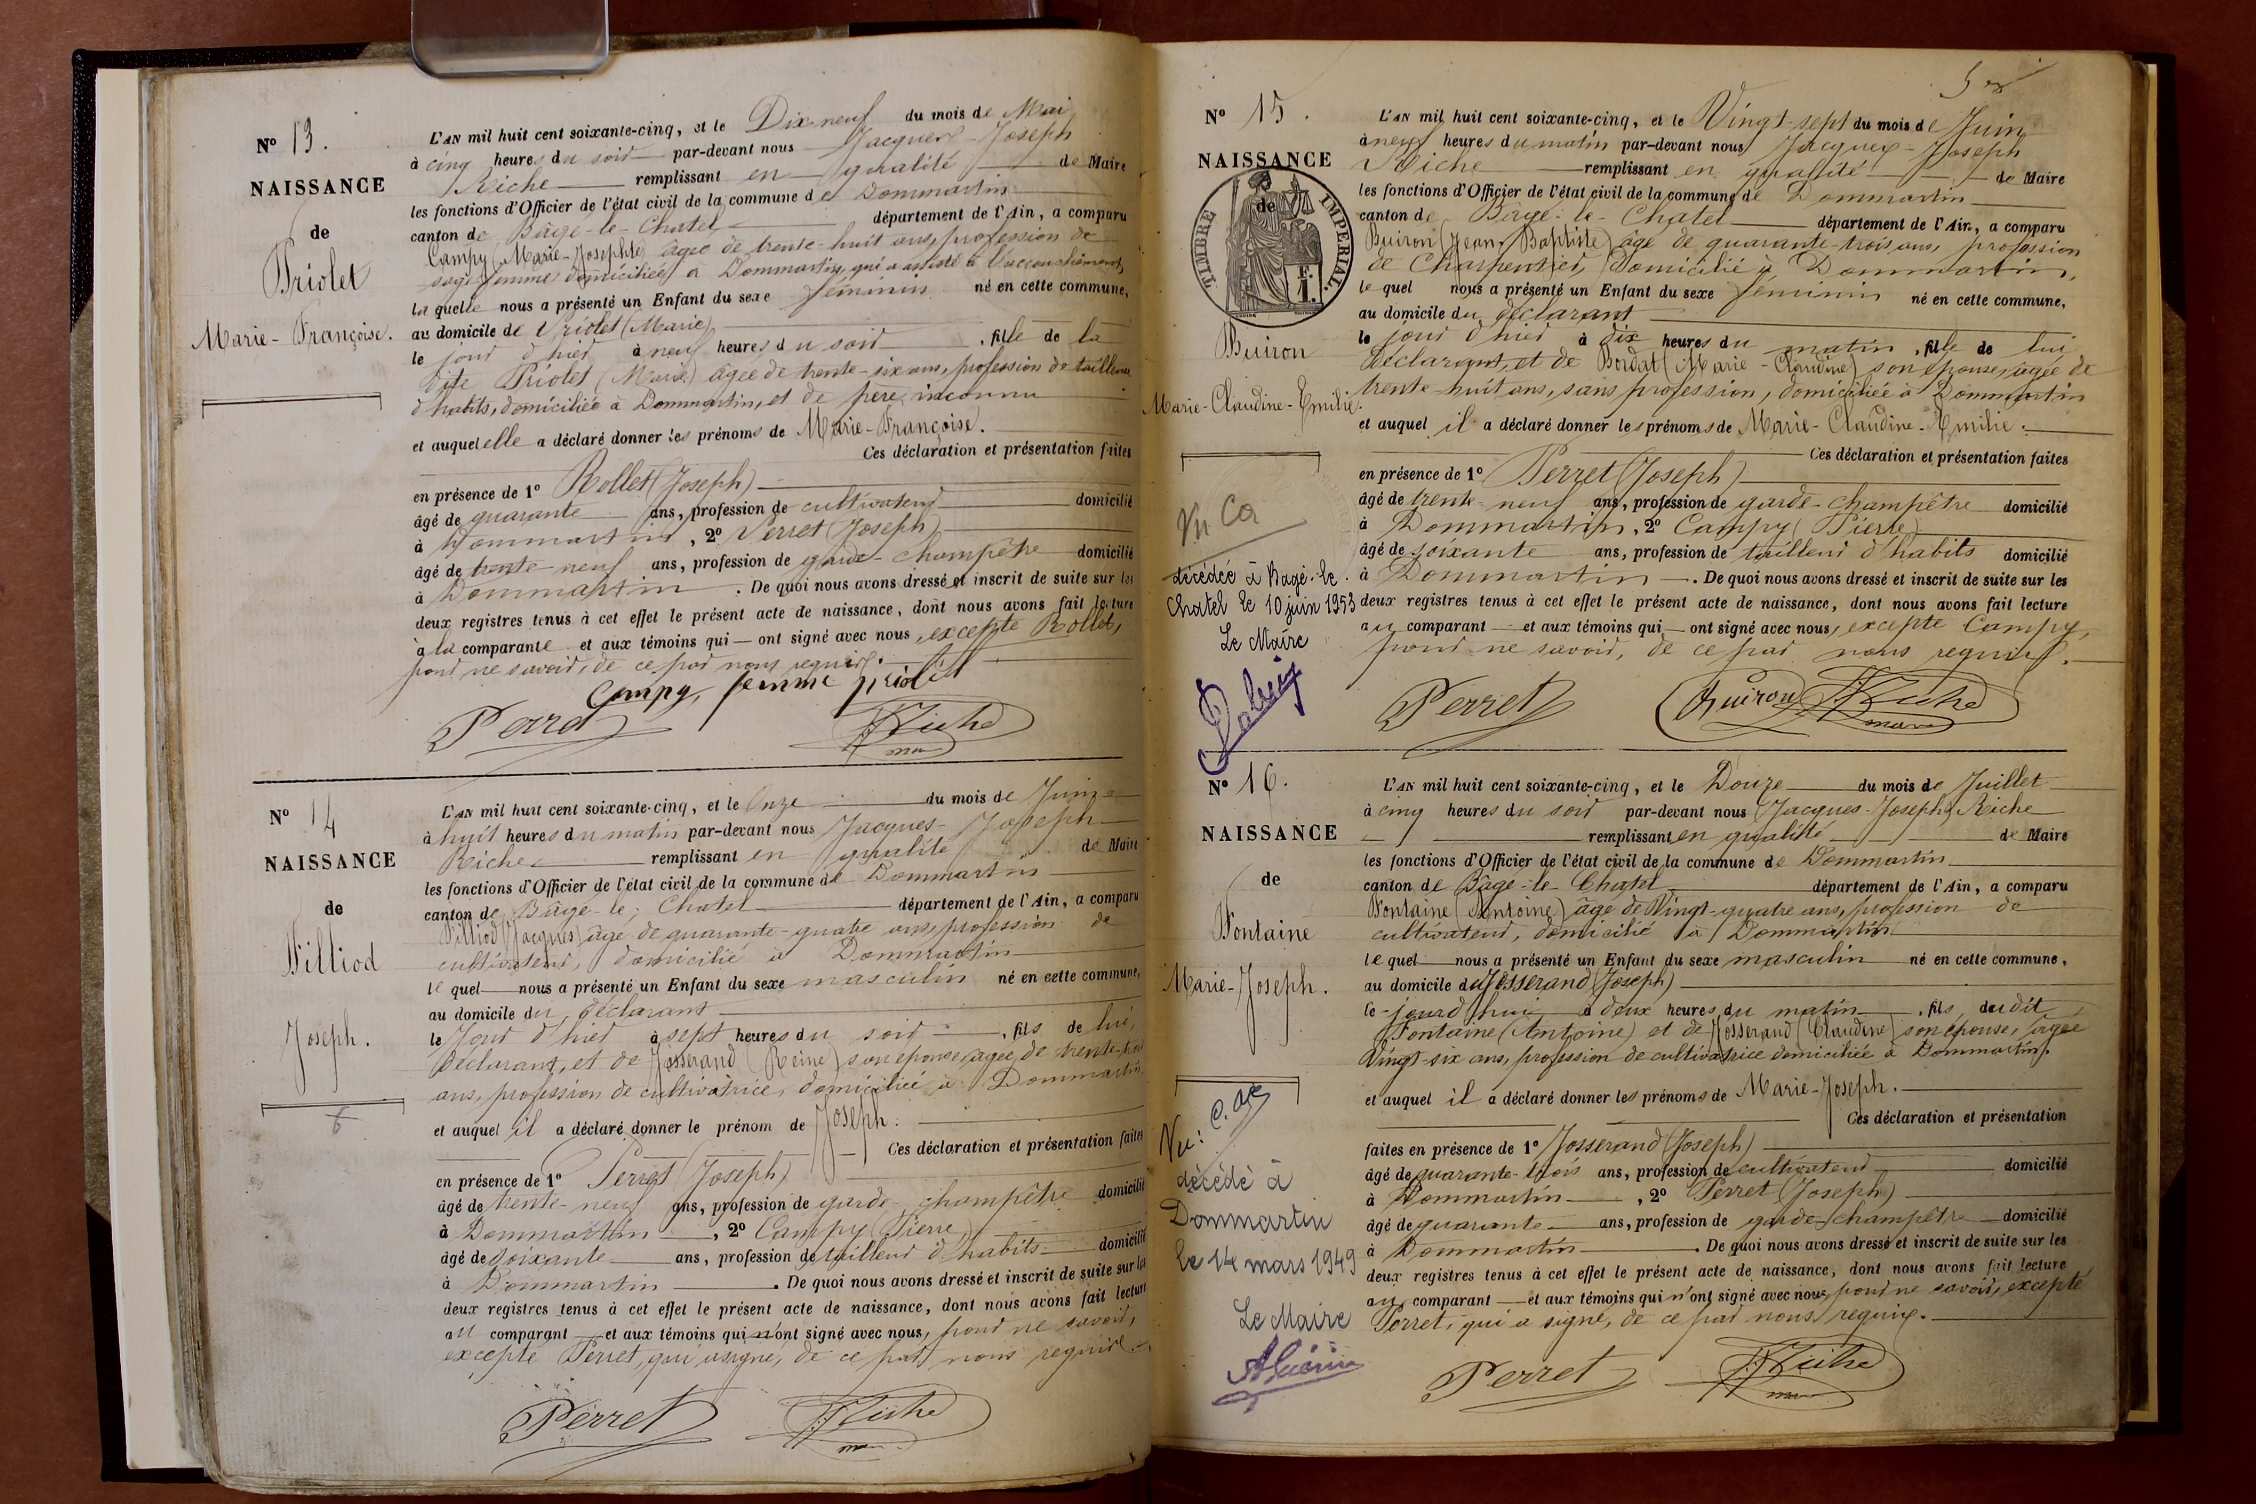 Nº 13.
NAISSANCE
de
Priolet
Marie-Françoise.
L'AN mil huit cent soixante-cinq, et le Dix neuf du mois de Mai
à cinq heures du soir par-devant nous Jacques-Joseph
Riche remplissant en qualité de Maire
les fonctions d'Officier de l'état civil de la commune de Dommartin
canton de Bâgé-le-Chatel département de l'Ain, a comparu
Campy (Marie-Josephte) âgée de trente-huit ans, profession de
sage femme domiciliée à Dommartin, qui a assisté à l'accouchement,
la quelle nous a présenté un Enfant du sexe féminin né en cette commune,
au domicile de Priolet (Marie)
le jour d'hier à neuf heures du soir, fille de la
dite Priolet (Marie) âgée de trente-six ans, profession de tailleuse
d'habits, domiciliée à Dommartin, et de père inconnu
et auquel elle a déclaré donner les prénoms de Marie-Françoise.
Ces déclaration et présentation faites
en présence de 1º Rollet (Joseph)
âgé de quarante ans, profession de cultivateur domicilié
à Dommartin, 2º Perret (Joseph)
âgé de trente-neuf ans, profession de garde-champêtre domicilié
à Dommartin. De quoi nous avons dressé et inscrit de suite sur les
deux registres tenus à cet effet le présent acte de naissance, dont nous avons fait lecture
à la comparante et aux témoins qui ont signé avec nous, excepté Rollet,
pour ne savoir, de ce par nous requis.
Campy, femme priolet
Perret Riche
Nº 14
NAISSANCE
de
Pilliod
Joseph.
L'AN mil huit cent soixante-cinq, et le Onze du mois de Juin
à huit heures du matin par-devant nous Jacques-Joseph
Riche remplissant en qualité de Maire
les fonctions d'Officier de l'état civil de la commune de Dommartin
canton de Bâgé-le-Chatel département de l'Ain, a comparu
Pilliod (Jacques) âgé de quarante-quatre ans, profession de
cultivateur, domicilié à Dommartin
le quel nous a présenté un Enfant du sexe masculin né en cette commune,
au domicile du déclarant
le jour d'hier à sept heures du soir, fils de lui,
déclarant, et de Josserand (Reine) son épouse, âgée de trente
ans, profession de cultivatrice, domiciliée à Dommartin
et auquel il a déclaré donner le prénom de Joseph.
Ces déclaration et présentation faites
en présence de 1º Perret (Joseph)
âgé de trente-neuf ans, profession de garde-champêtre domicilié
à Dommartin, 2º Campy (Pierre)
âgé de soixante ans, profession de tailleur d'habits domicilié
à Dommartin. De quoi nous avons dressé et inscrit de suite sur les
deux registres tenus à cet effet le présent acte de naissance, dont nous avons fait lecture
au comparant et aux témoins qui n'ont signé avec nous, pour ne savoir,
excepté Perret, qui a signé, de ce par nous requis.
Perret Riche
Nº 15.
NAISSANCE
de
TIMBRE IMPERIAL
Buiron
Marie-Claudine-Emilie.
Vu
décédée à Bagé-le-
Chatel le 10 juin 1953
Le Maire
L'AN mil huit cent soixante-cinq, et le Vingt-sept du mois de Juin
à neuf heures du matin par-devant nous Jacques-Joseph
Riche remplissant en qualité de Maire
les fonctions d'Officier de l'état civil de la commune de Dommartin
canton de Bâgé-le-Chatel département de l'Ain, a comparu
Buiron (Jean-Baptiste) âgé de quarante-trois ans, profession
de Charpentier, domicilié à Dommartin,
le quel nous a présenté un Enfant du sexe féminin né en cette commune,
au domicile du déclarant
le jour d'hier à dix heures du matin, fille de lui
déclarant, et de Bordat (Marie-Claudine) son épouse, âgée de
trente-huit ans, sans profession, domiciliée à Dommartin
et auquel il a déclaré donner les prénoms de Marie-Claudine-Emilie.
Ces déclaration et présentation faites
en présence de 1º Perret (Joseph)
âgé de trente-neuf ans, profession de garde-champêtre domicilié
à Dommartin, 2º Campy (Pierre)
âgé de soixante ans, profession de tailleur d'habits domicilié
à Dommartin. De quoi nous avons dressé et inscrit de suite sur les
deux registres tenus à cet effet le présent acte de naissance, dont nous avons fait lecture
au comparant et aux témoins qui ont signé avec nous, excepté Campy,
pour ne savoir, de ce par nous requis.
Perret Buiron Riche
Nº 16.
NAISSANCE
de
Fontaine
Marie-Joseph.
Vu:
décédé à
Dommartin
le 14 mars 1949
Le Maire
L'AN mil huit cent soixante-cinq, et le Douze du mois de Juillet
à cinq heures du soir par-devant nous Jacques-Joseph Riche
remplissant en qualité de Maire
les fonctions d'Officier de l'état civil de la commune de Dommartin
canton de Bâgé-le-Chatel département de l'Ain, a comparu
Fontaine (Antoine) âgé de Vingt-quatre ans, profession de
cultivateur, domicilié à Dommartin
le quel nous a présenté un Enfant du sexe masculin né en cette commune,
au domicile de Josserand (Joseph)
ce-jourd'hui à deux heures du matin, fils du dit
Fontaine (Antoine) et de Josserand (Claudine) son épouse, âgée
Vingt-six ans, profession de cultivatrice domiciliée à Dommartin.
et auquel il a déclaré donner les prénoms de Marie-Joseph.
Ces déclaration et présentation
faites en présence de 1º Josserand (Joseph)
âgé de quarante-trois ans, profession de cultivateur domicilié
à Dommartin, 2º Perret (Joseph)
âgé de quarante ans, profession de garde-champêtre domicilié
à Dommartin. De quoi nous avons dressé et inscrit de suite sur les
deux registres tenus à cet effet le présent acte de naissance, dont nous avons fait lecture
au comparant et aux témoins qui n'ont signé avec nous, pour ne savoir, excepté
Perret, qui a signé, de ce par nous requis.
Perret Riche